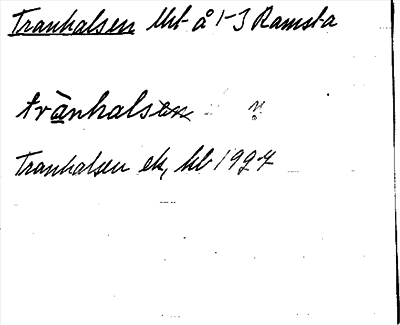 Tranhalsen Urt å 1-3 Ramsta
trànhalsen
Tranhalsen ek, kb 1927